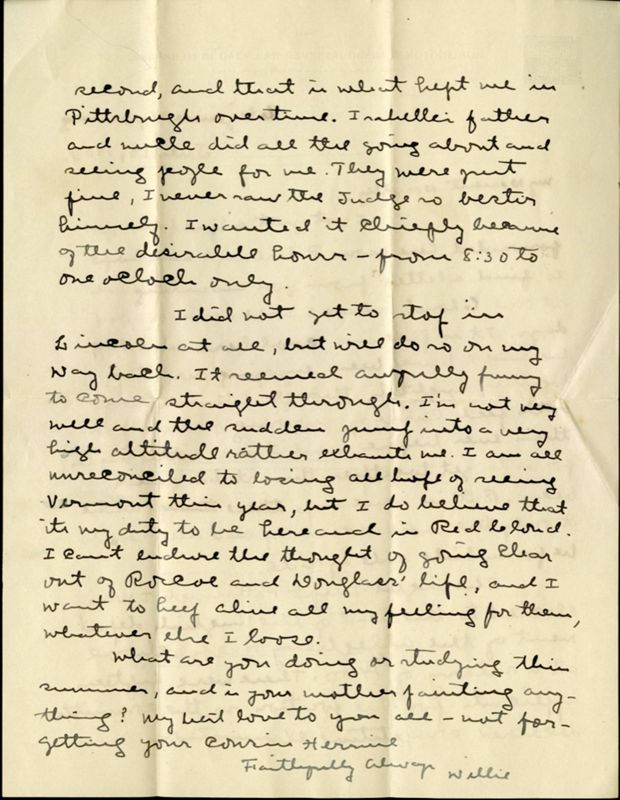 second, and that is what kept me in
Pittsburgh overtime. Isabelle's father
and uncle did all the going about and
seeing people for me. They were just
fine, I never saw the Judge so bestir
himself. I wanted it chiefly because
of the desirable hours – from 8:30 to
one oclock only.
I did not get to stop in
Lincoln at all, but will do so on my
way back. It seemed awfully funny
to come straight through. I'm not very
well and the sudden jump into a very
high altitude rather exhausts me. I am all
unreconciled to losing all hope of seeing
Vermont this year, but I do believe that
its my duty to be here and in Red Cloud.
I can't endure the thought of going clear
out of Roscoe and Douglass' life, and I
want to keep alive all my feeling for them,
whatever else I loose.
What are you doing or studying this
summer, and is your mother painting any-
thing? My best love to you all – not for-
getting your cousin
Faithfully Always Willie